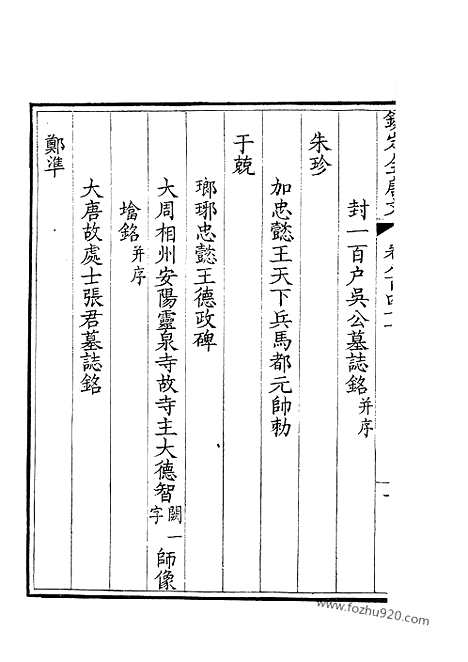 欽定全唐文 卷八百四十一
封一百户吳公墓誌銘并序
朱珍
加忠懿王天下兵馬都元帥勅
于兢
瑯琊忠懿王德政碑
大周相州安陽靈泉寺故寺主大德智闕一字師像
塔銘并序
大唐故處士張君墓誌銘
鄭準
www.fozhu920.com